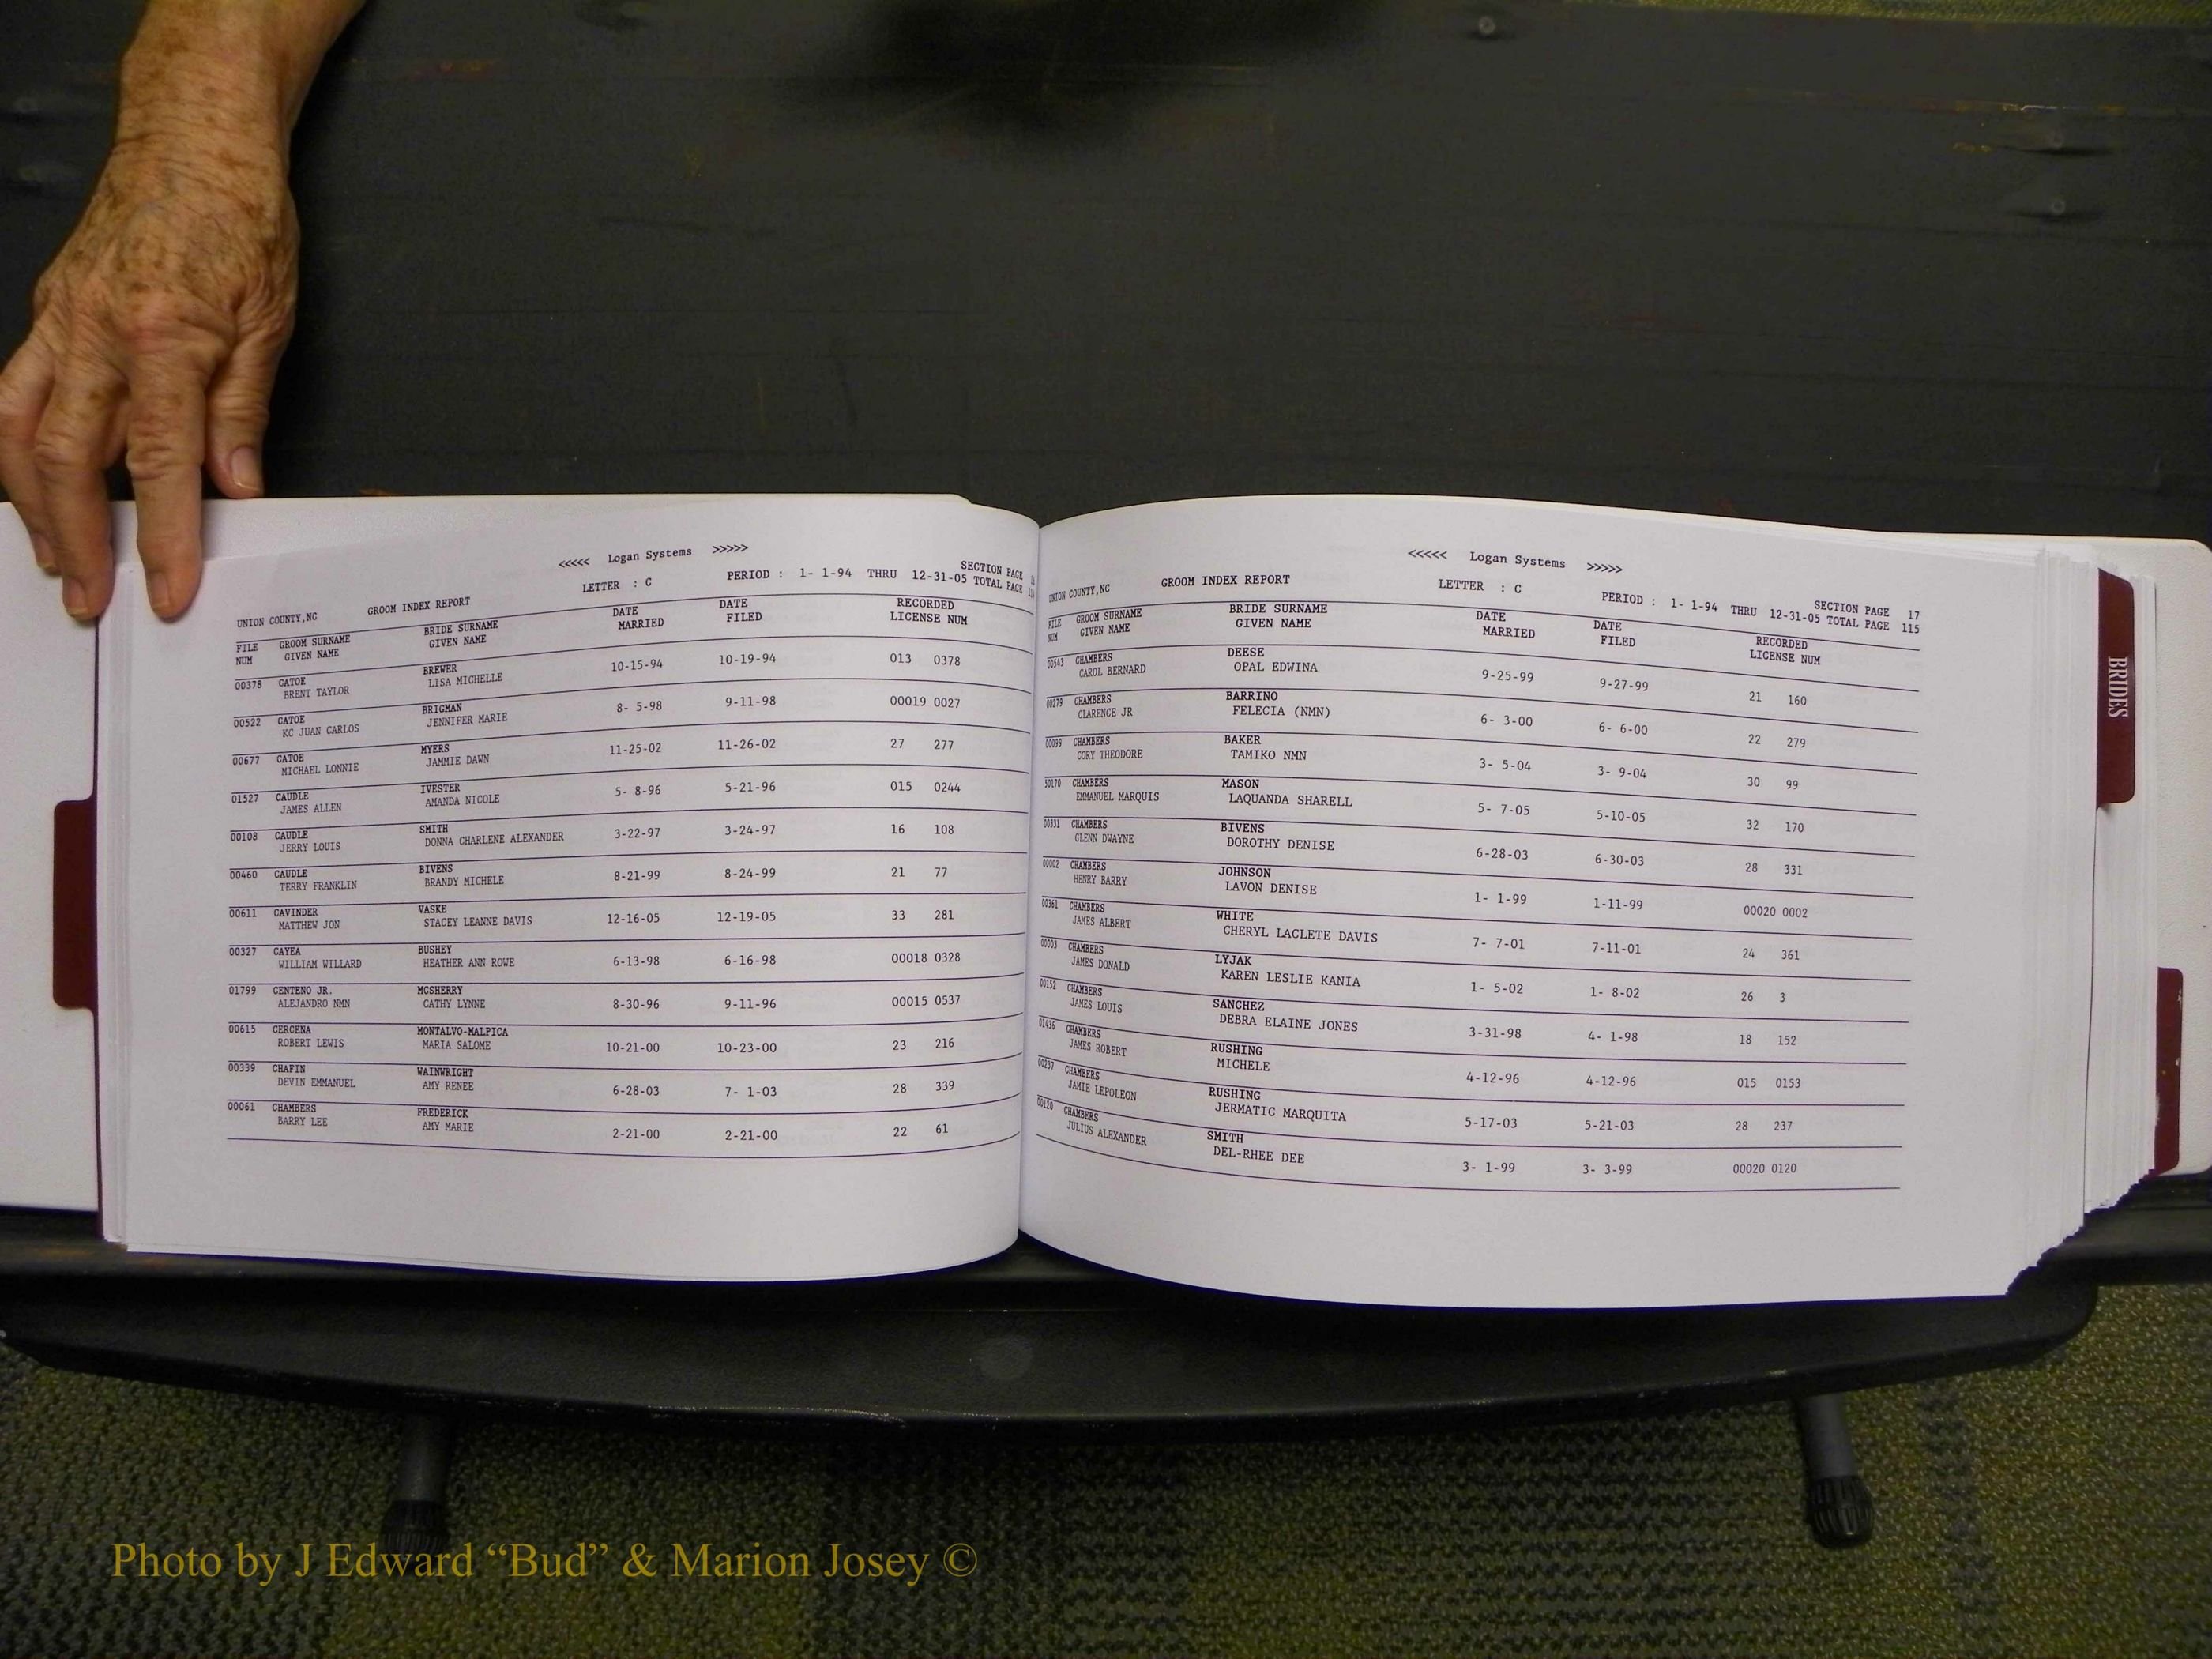 <<<<< Logan Systems >>>>>
UNION COUNTY,NC GROOM INDEX REPORT LETTER : C PERIOD : 1- 1-94 THRU 12-31-05 SECTION PAGE
TOTAL PAGE
FILE GROOM SURNAME BRIDE SURNAME DATE DATE RECORDED
NUM GIVEN NAME GIVEN NAME MARRIED FILED LICENSE NUM
00378 CATOE BREWER 10-15-94 10-19-94 013 0378
BRENT TAYLOR LISA MICHELLE
00522 CATOE BRIGMAN 8- 5-98 9-11-98 00019 0027
KC JUAN CARLOS JENNIFER MARIE
00677 CATOE MYERS 11-25-02 11-26-02 27 277
MICHAEL LONNIE JAMMIE DAWN
01527 CAUDLE IVESTER 5- 8-96 5-21-96 015 0244
JAMES ALLEN AMANDA NICOLE
00108 CAUDLE SMITH 3-22-97 3-24-97 16 108
JERRY LOUIS DONNA CHARLENE ALEXANDER
00460 CAUDLE BIVENS 8-21-99 8-24-99 21 77
TERRY FRANKLIN BRANDY MICHELE
00611 CAVINDER VASKE 12-16-05 12-19-05 33 281
MATTHEW JON STACEY LEANNE DAVIS
00327 CAYEA BUSHEY 6-13-98 6-16-98 00018 0328
WILLIAM WILLARD HEATHER ANN ROWE
01799 CENTENO JR. MCSHERRY 8-30-96 9-11-96 00015 0537
ALEJANDRO NMN CATHY LYNNE
00615 CERCENA MONTALVO-MALPICA 10-21-00 10-23-00 23 216
ROBERT LEWIS MARIA SALOME
00339 CHAFIN WAINWRIGHT 6-28-03 7- 1-03 28 339
DEVIN EMMANUEL AMY RENEE
00061 CHAMBERS FREDERICK 2-21-00 2-21-00 22 61
BARRY LEE AMY MARIE
<<<<< Logan Systems >>>>>
UNION COUNTY,NC GROOM INDEX REPORT LETTER : C PERIOD : 1- 1-94 THRU 12-31-05 SECTION PAGE 17
TOTAL PAGE 115
FILE GROOM SURNAME BRIDE SURNAME DATE DATE RECORDED
NUM GIVEN NAME GIVEN NAME MARRIED FILED LICENSE NUM
00543 CHAMBERS DEESE 9-25-99 9-27-99 21 160
CAROL BERNARD OPAL EDWINA
00279 CHAMBERS BARRINO 6- 3-00 6- 6-00 22 279
CLARENCE JR FELECIA (NMN)
00099 CHAMBERS BAKER 3- 5-04 3- 9-04 30 99
CORY THEODORE TAMIKO NMN
50170 CHAMBERS MASON 5- 7-05 5-10-05 32 170
EMMANUEL MARQUIS LAQUANDA SHARELL
00331 CHAMBERS BIVENS 6-28-03 6-30-03 28 331
GLENN DWAYNE DOROTHY DENISE
00002 CHAMBERS JOHNSON 1- 1-99 1-11-99 00020 0002
HENRY BARRY LAVON DENISE
00361 CHAMBERS WHITE 7- 7-01 7-11-01 24 361
JAMES ALBERT CHERYL LACLETE DAVIS
00003 CHAMBERS LYJAK 1- 5-02 1- 8-02 26 3
JAMES DONALD KAREN LESLIE KANIA
00152 CHAMBERS SANCHEZ 3-31-98 4- 1-98 18 152
JAMES LOUIS DEBRA ELAINE JONES
01436 CHAMBERS RUSHING 4-12-96 4-12-96 015 0153
JAMES ROBERT MICHELE
00237 CHAMBERS RUSHING 5-17-03 5-21-03 28 237
JAMIE LEPOLEON JERMATIC MARQUITA
00120 CHAMBERS SMITH 3- 1-99 3- 3-99 00020 0120
JULIUS ALEXANDER DEL-RHEE DEE
BRIDES
Photo by J Edward “Bud” & Marion Josey ©